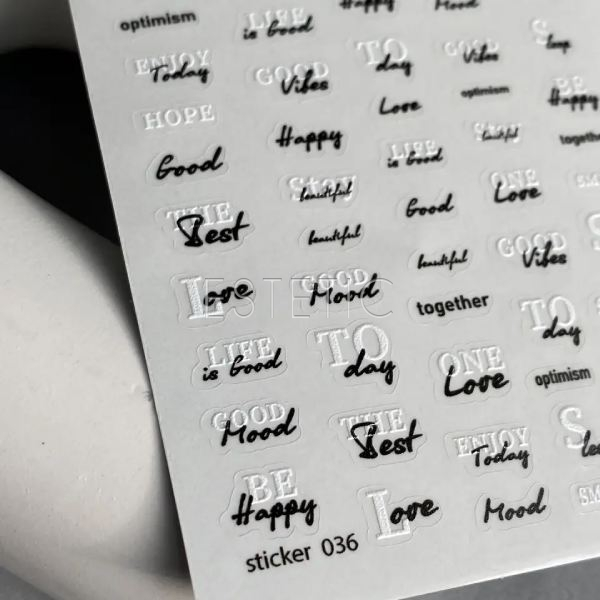 optimism
LIFE
is Good
Happy
Mood
ENJOY
Today
GOOD
Vibes
TO
day
GOOD
Vibes
HOPE
Happy
Love
optimism
BE
Happy
Good
Stay
beautiful
LIFE
is Good
Stay
beautiful
together
THE
Best
beautiful
Good
ONE
Love
Love
GOOD
Mood
beautiful
GOOD
Vibes
ESTETIC
together
TO
day
LIFE
is Good
TO
day
ONE
Love
optimism
GOOD
Mood
THE
Best
ENJOY
Today
BE
Happy
Love
Mood
sticker 036